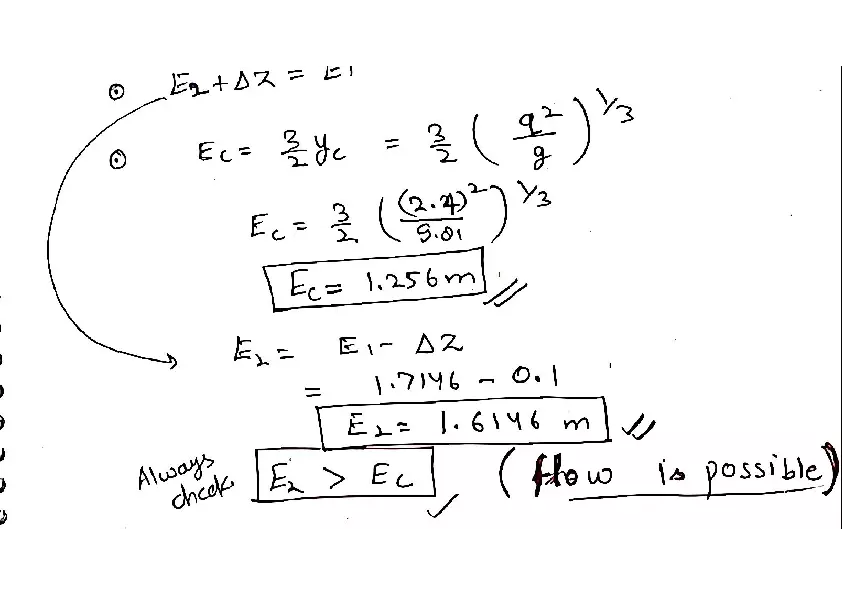 ⊙ E2 + ΔZ = E1
⊙ Ec = 3/2 yc = 3/2 (q²/g)^1/3
Ec = 3/2 ((2.4)²/9.81)^1/3
Ec = 1.256 m
E2 = E1 - ΔZ
= 1.7146 - 0.1
E2 = 1.6146 m
Always check E2 > Ec (flow is possible)